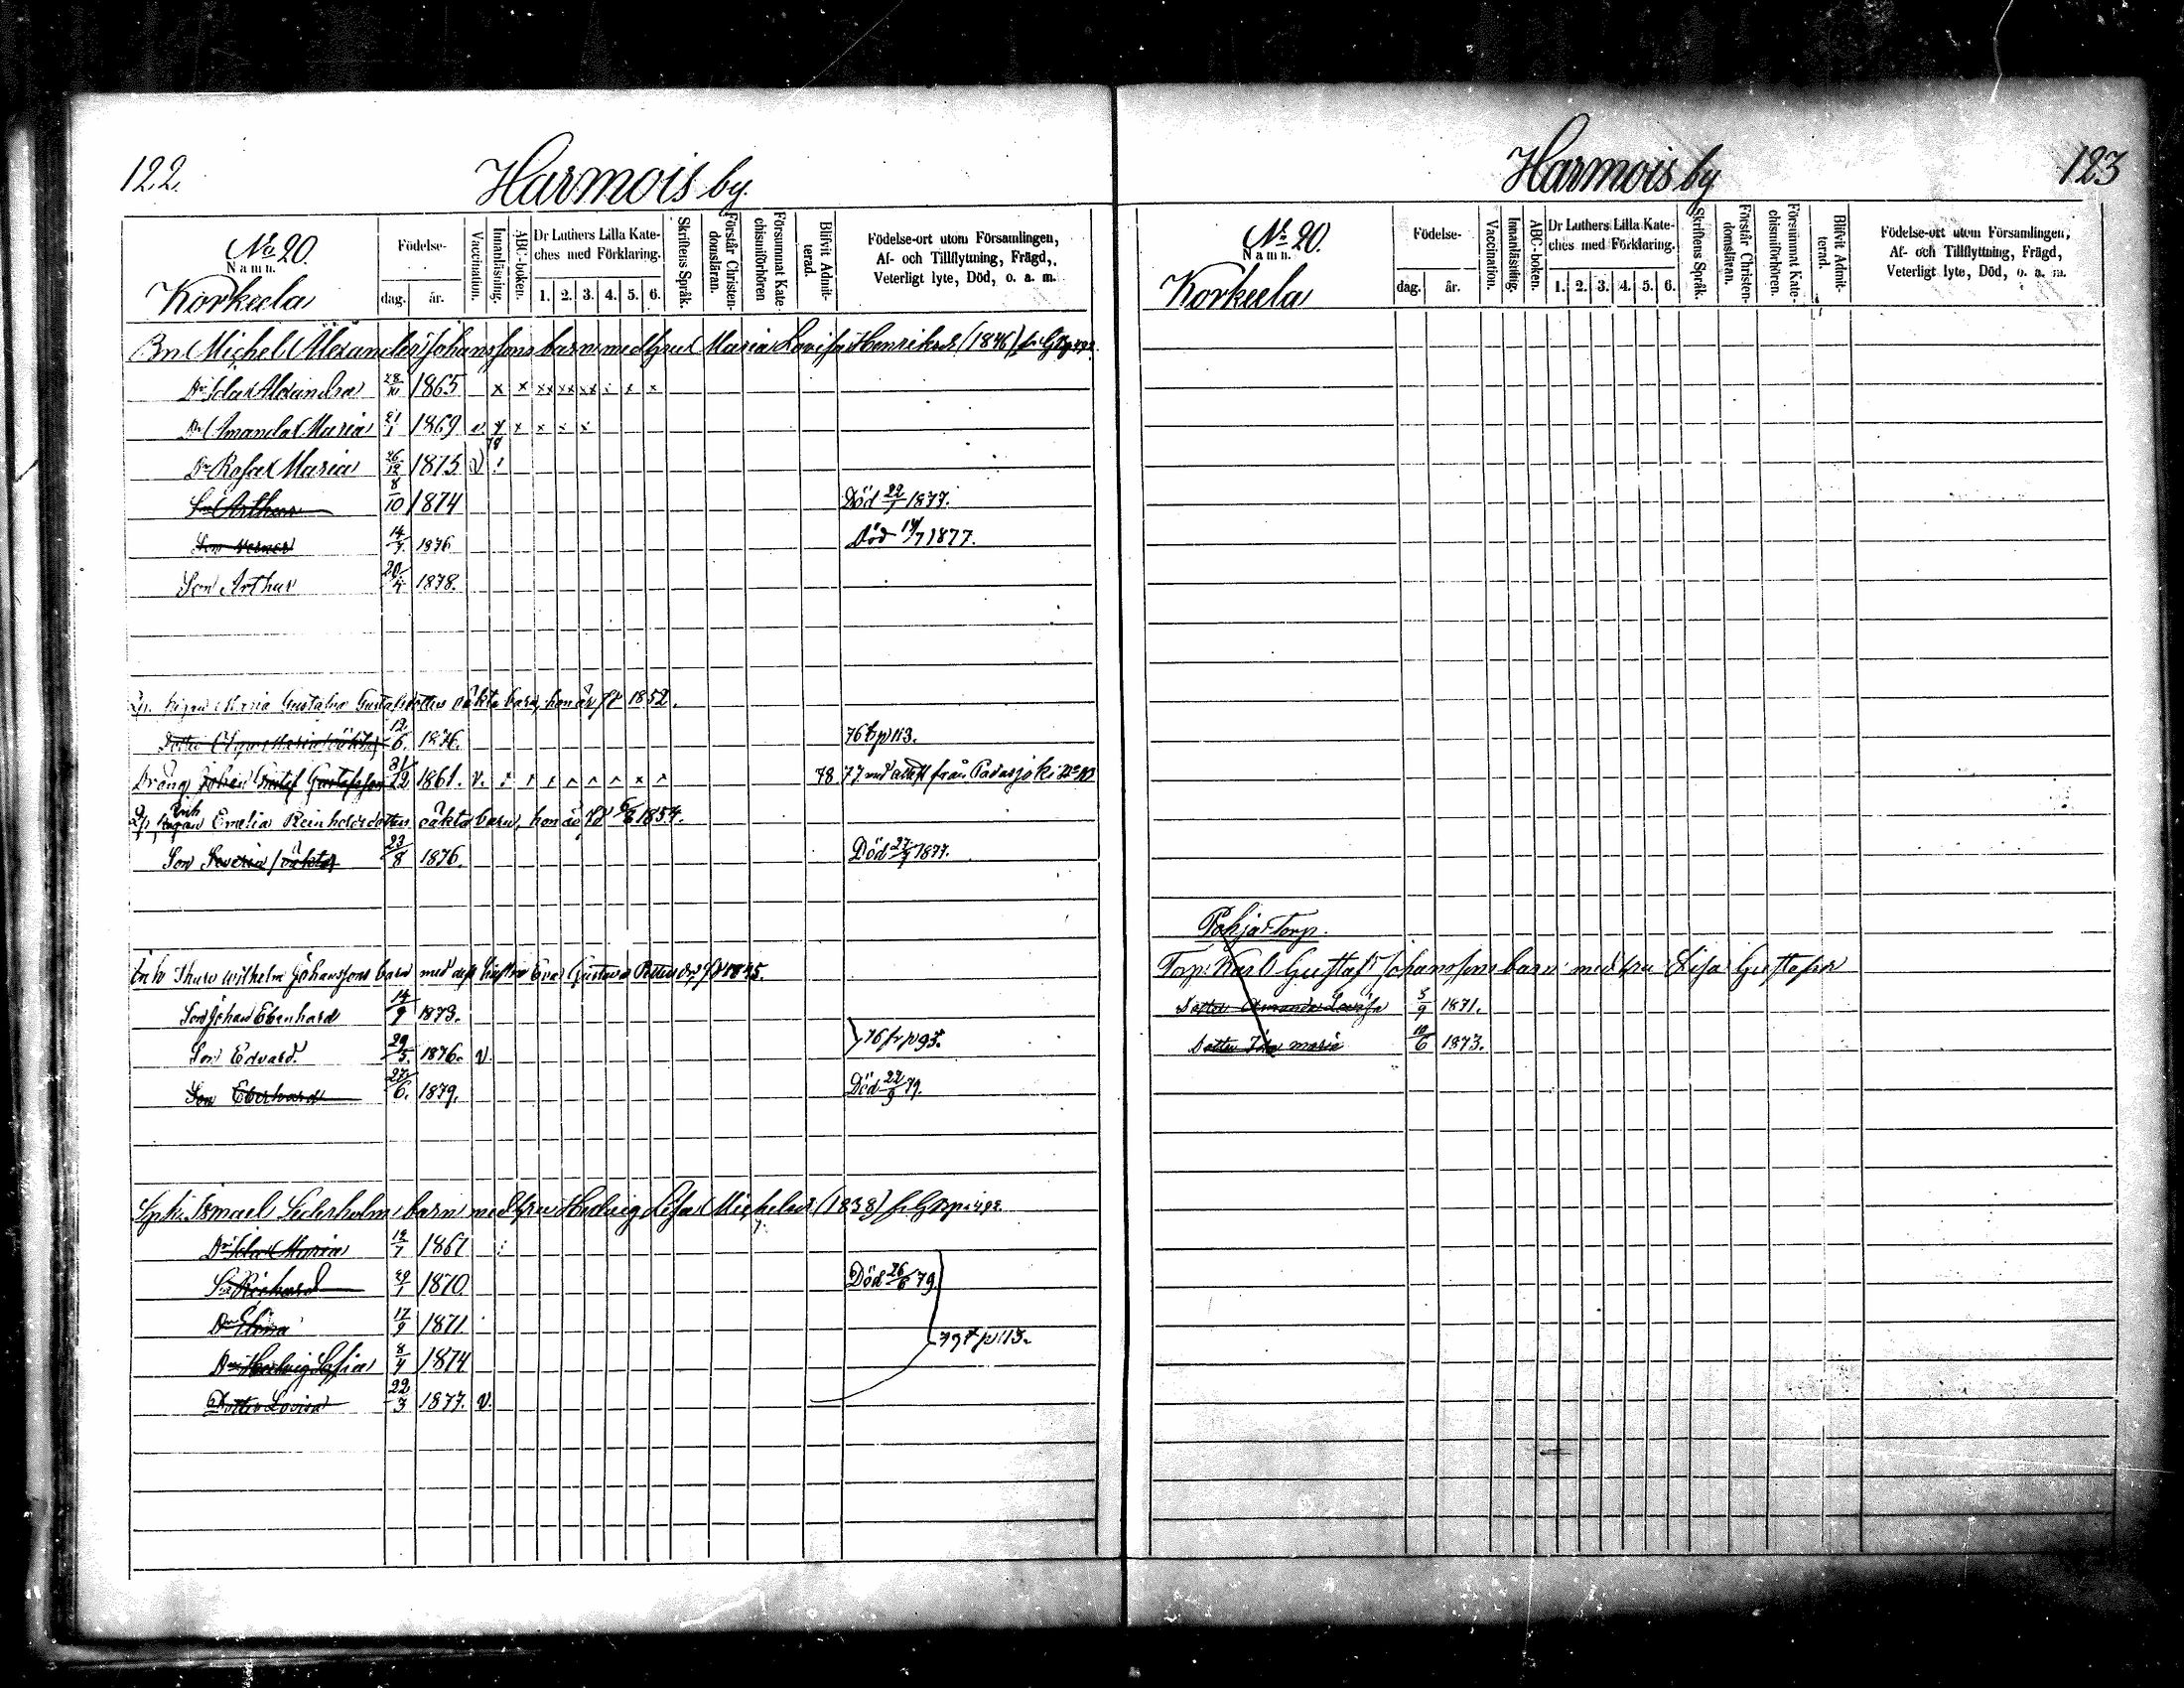 122.
Harmois by.
No 20.
Namn.
Korkeela
Födelse-
dag. år.
Vaccination.
Innanläsning.
ABC-boken.
Dr Luthers Lilla Kate-
ches med Förklaring.
1. 2. 3. 4. 5. 6.
Skriftens Språk.
Förstår Christen-
domsläran.
Försummat Kate-
chismiförhören
Blifvit Admit-
terad.
Födelse-ort utom Församlingen,
Af- och Tillflyttning, Frägd,
Veterligt lyte, Död, o. a. m.
Bn Michel Alexander Johanssons barn med hru Maria Lovisa Henriksdr (1846)
Dr Ida Alexandra 28/10 1865 x x xx xx xx x x
Dr Amanda Maria 21/1 1869 v. x x x x x
Dr Rosa Maria 26/12 1875 v
Sn Arthur 8/10 1874 Död 22/7 1877.
Son Verner 14/7 1876 Död 14/7 1877.
Son Arthur 20/4 1878.
Maria Gustava Gustafsdotters oäkta barn, hon är fd 1852.
Dotter Maria (oäkta) 12/6. 1876. 76 p 113.
Dräng Johan Gustaf Gustafsson 31/12 1861. v. 78 77 med attest från Padasjoki No 10
Emelia Reinholdsdotters oäkta barn, hon är fd 6/6 1854.
Son Severin (oäkta) 23/8 1876. Död 27/7 1877.
Inh Thure Wilhelm Johanssons barn med dess hustru Eva Gustava fd 1845.
Son Johan Ebenhard 14/9 1873.
Son Edvard. 29/5. 1876. v. 76 fr p 93.
Son Eberhard 27/6. 1879. Död 22/9 79.
Ismael Sederholms barn med hru Hedvig Lisa Michelsdr (1838)
Dr Ida Maria 12/7 1867
Sn Richard 29/1 1870 Död 26/6 79.
Dr Elina 17/9 1871
79 p 113.
Dr Hedvig Sofia 8/4 1874
Dotter Lovisa 22/3 1877. v.
Harmois by
123
No 20.
Namn.
Korkeela
Födelse-
dag. år.
Vaccination.
Innanläsning.
ABC-boken.
Dr Luthers Lilla Kate-
ches med Förklaring.
1. 2. 3. 4. 5. 6.
Skriftens Språk.
Förstår Christen-
domsläran.
Försummat Kate-
chismiförhören.
Blifvit Admit-
terad.
Födelse-ort utom Församlingen,
Af- och Tillflyttning, Frägd,
Veterligt lyte, Död, o. a. m.
Pohja Torp.
Torp. Karl Gustaf Johanssons barn med hru Lisa Gustafsdr
Dotter Amanda Lovisa 5/9 1871.
Dotter Ida Maria 10/6 1873.